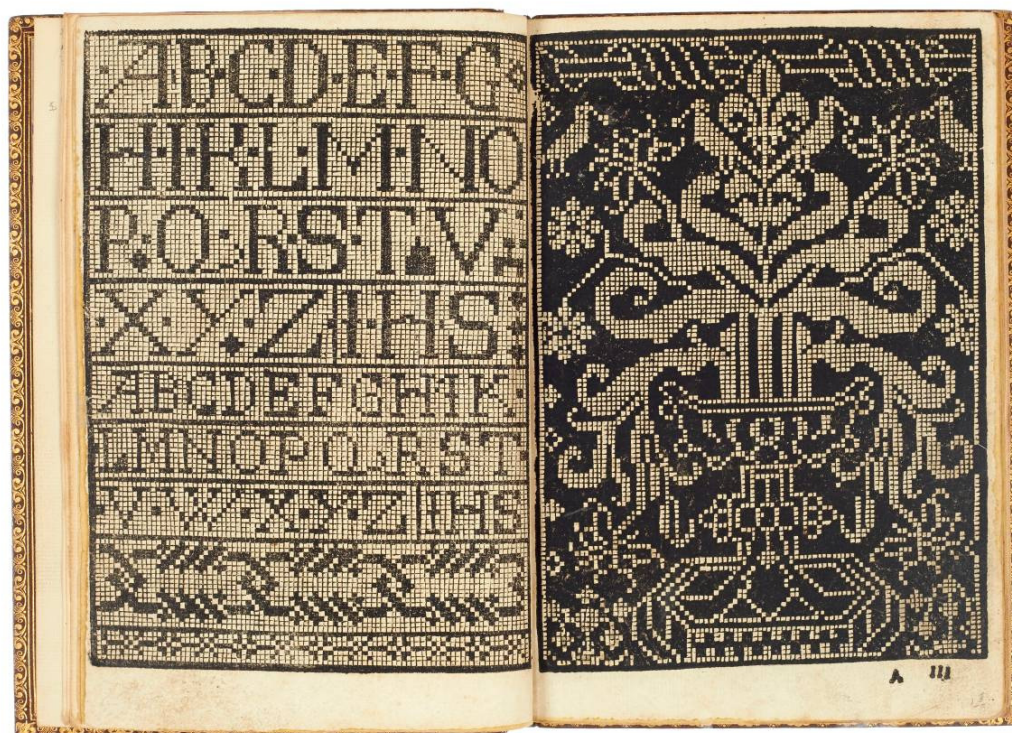 ·A·B·C·D·E·F·G
H·I·K·L·M·N·O
P·Q·R·S·T·V
·X·Y·Z IHS
ABCDEFGHIK·
LMNOPQRST·
·V·W·X·Y·Z IHS
A III